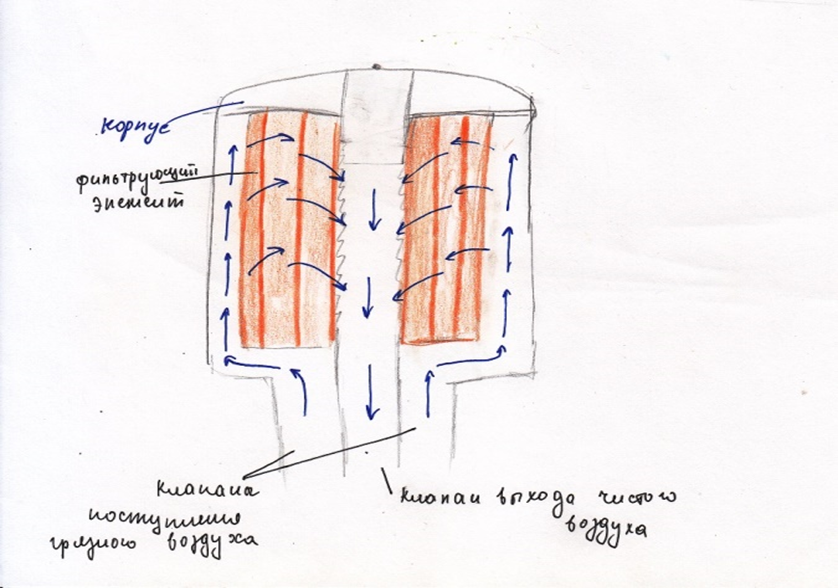 Корпус
Фильтрующий
элемент
Клапана
поступления
грязного воздуха
Клапан выхода чистого
воздуха